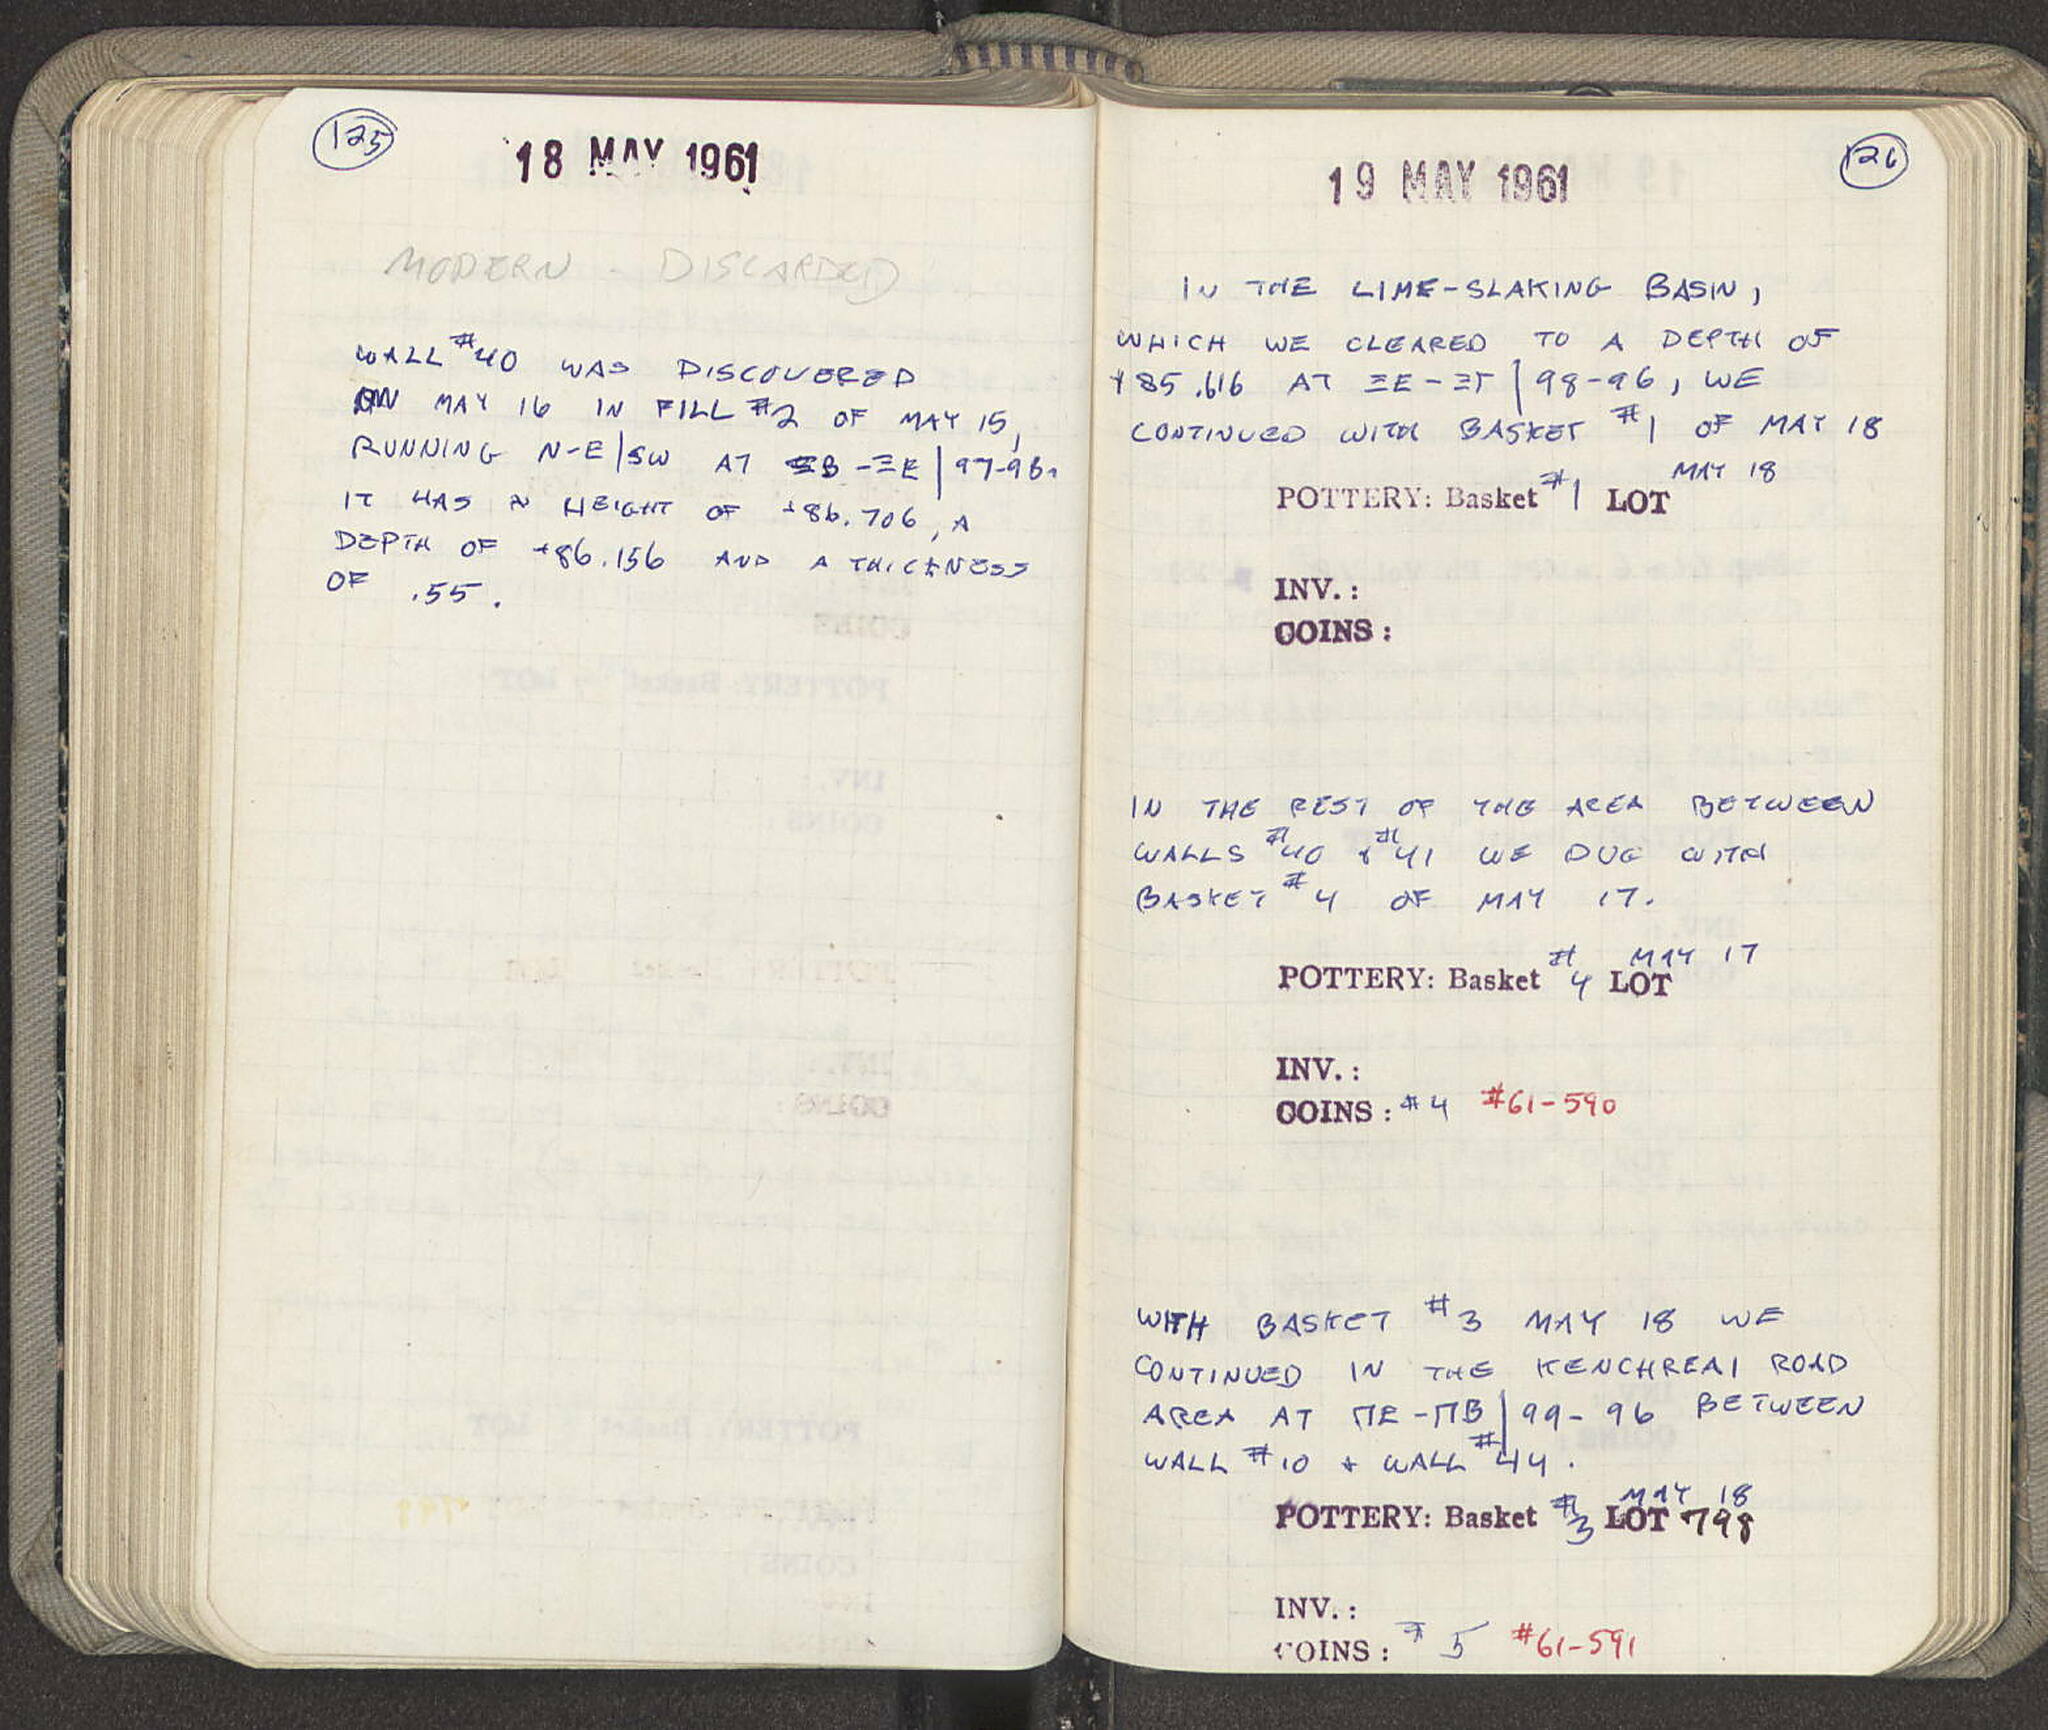 125
18 MAY 1961
MODERN - DISCARDED
WALL #40 WAS DISCOVERED
ON MAY 16 IN FILL #2 OF MAY 15,
RUNNING N-E/SW AT ΞB-ΞE/97-96.
IT HAS A HEIGHT OF +86.706, A
DEPTH OF +86.156 AND A THICKNESS
OF .55.
126
19 MAY 1961
IN THE LIME-SLAKING BASIN,
WHICH WE CLEARED TO A DEPTH OF
+85.616 AT ΞE-ΞΓ/98-96, WE
CONTINUED WITH BASKET #1 OF MAY 18
MAY 18
POTTERY: Basket #1 LOT
INV.:
COINS:
IN THE REST OF THE AREA BETWEEN
WALLS #40 & #41 WE DUG WITH
BASKET #4 OF MAY 17.
MAY 17
POTTERY: Basket #4 LOT
INV.:
COINS: #4 #61-590
WITH BASKET #3 MAY 18 WE
CONTINUED IN THE KENCHREAI ROAD
AREA AT ΠE-ΠB/99-96 BETWEEN
WALL #10 & WALL #44.
MAY 18
POTTERY: Basket #3 LOT 798
INV.:
COINS: #5 #61-591